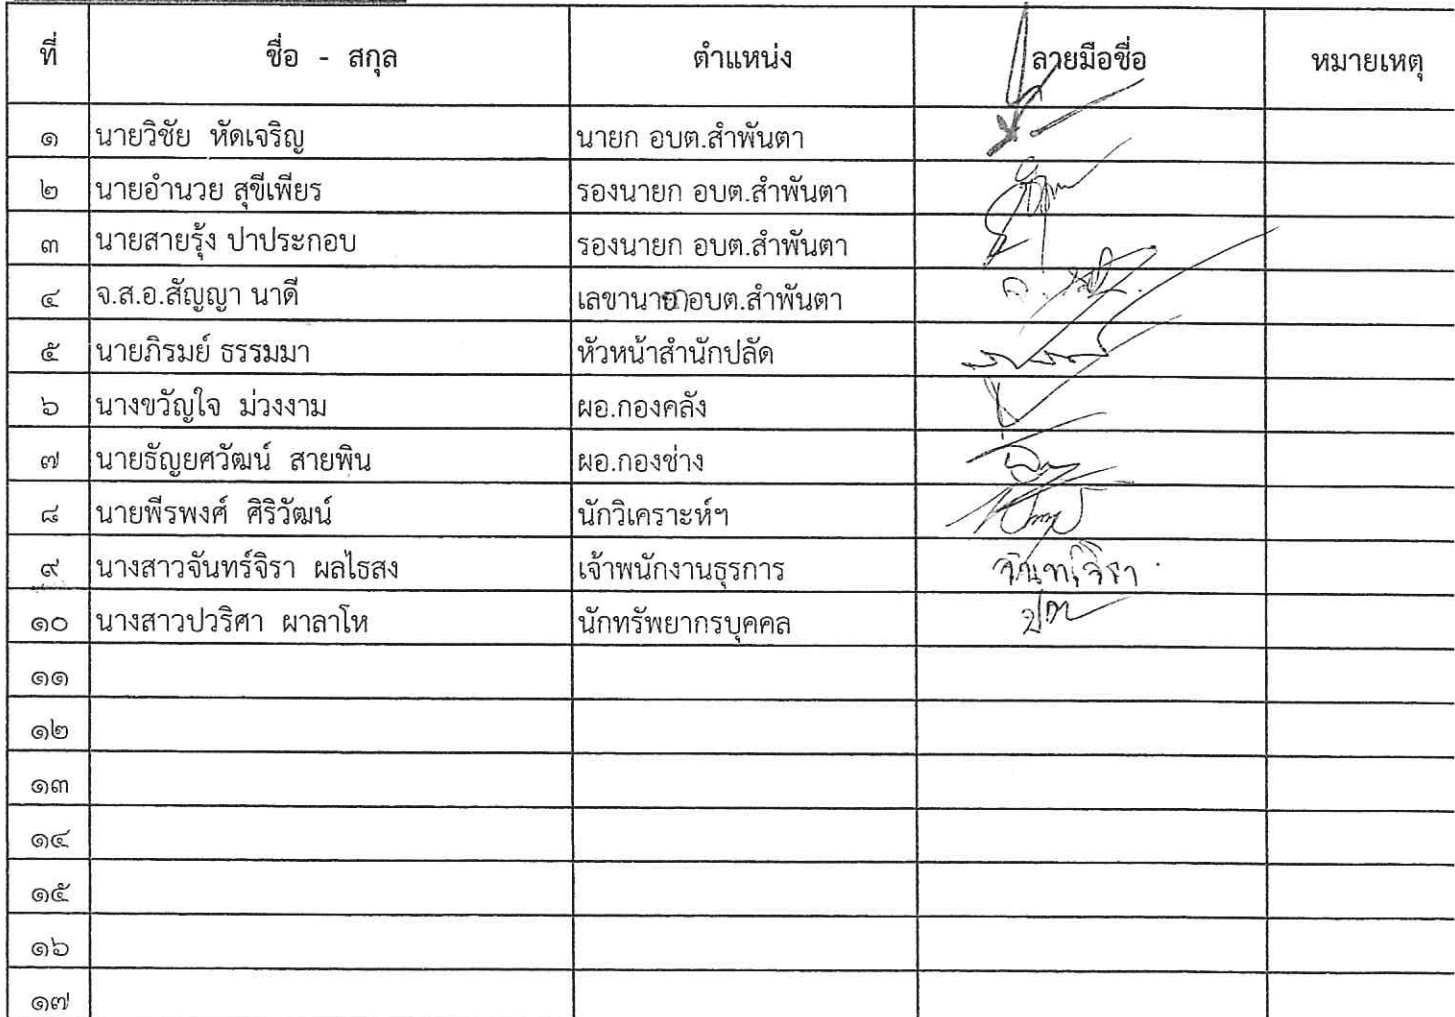 ที่ ชื่อ - สกุล ตำแหน่ง ลายมือชื่อ หมายเหตุ
๑ นายวิชัย หัดเจริญ นายก อบต.สำพันตา
๒ นายอำนวย สุขีเพียร รองนายก อบต.สำพันตา
๓ นายสายรุ้ง ปาประกอบ รองนายก อบต.สำพันตา
๔ จ.ส.อ.สัญญา นาดี เลขานายกอบต.สำพันตา
๕ นายภิรมย์ ธรรมมา หัวหน้าสำนักปลัด
๖ นางขวัญใจ ม่วงงาม ผอ.กองคลัง
๗ นายธัญยศวัฒน์ สายพิน ผอ.กองช่าง
๘ นายพีรพงศ์ ศิริวัฒน์ นักวิเคราะห์ฯ
๙ นางสาวจันทร์จิรา ผลไธสง เจ้าพนักงานธุรการ จันทร์จิรา
๑๐ นางสาวปวริศา ผาลาโห นักทรัพยากรบุคคล
๑๑
๑๒
๑๓
๑๔
๑๕
๑๖
๑๗